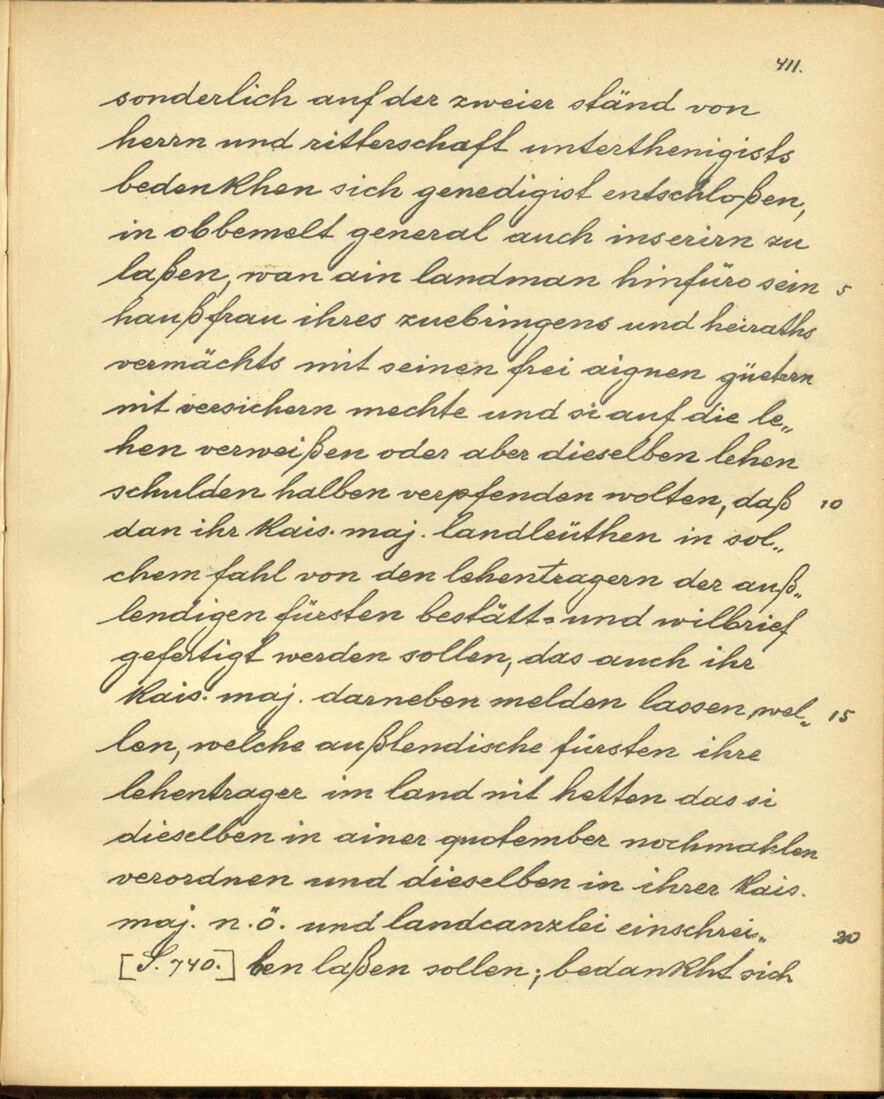 411.
sonderlich auf der zweier ständ von
herrn und ritterschaft unterthenigists
bedenkhen sich genedigist entschloßen,
in obbemelt general auch inserirn zu
laßen, wan ain landman hinfüro sein 5
haußfrau ihres zuebringens und heiraths
vermächts mit seinen frei aignen güetern
nit versichern mechte und si auf die le„
hen verweißen oder aber dieselben lehen
schulden halben verpfenden wolten, daß 10
dan ihr kais. maj. landleüthen in sol„
chem fahl von den lehentragern der auß„
lendigen fürsten bestätt= und wilbrief
gefertigt werden sollen, das auch ihr
kais. maj. darneben melden lassen wel„ 15
len, welche außlendische fürsten ihre
lehentrager im land nit hetten das si
dieselben in ainer quotember nochmahlen
verordnen und dieselben in ihrer kais.
maj. n. ö. und landcanzlei einschrei„ 20
[S. 740.] ben laßen sollen; bedankht sich